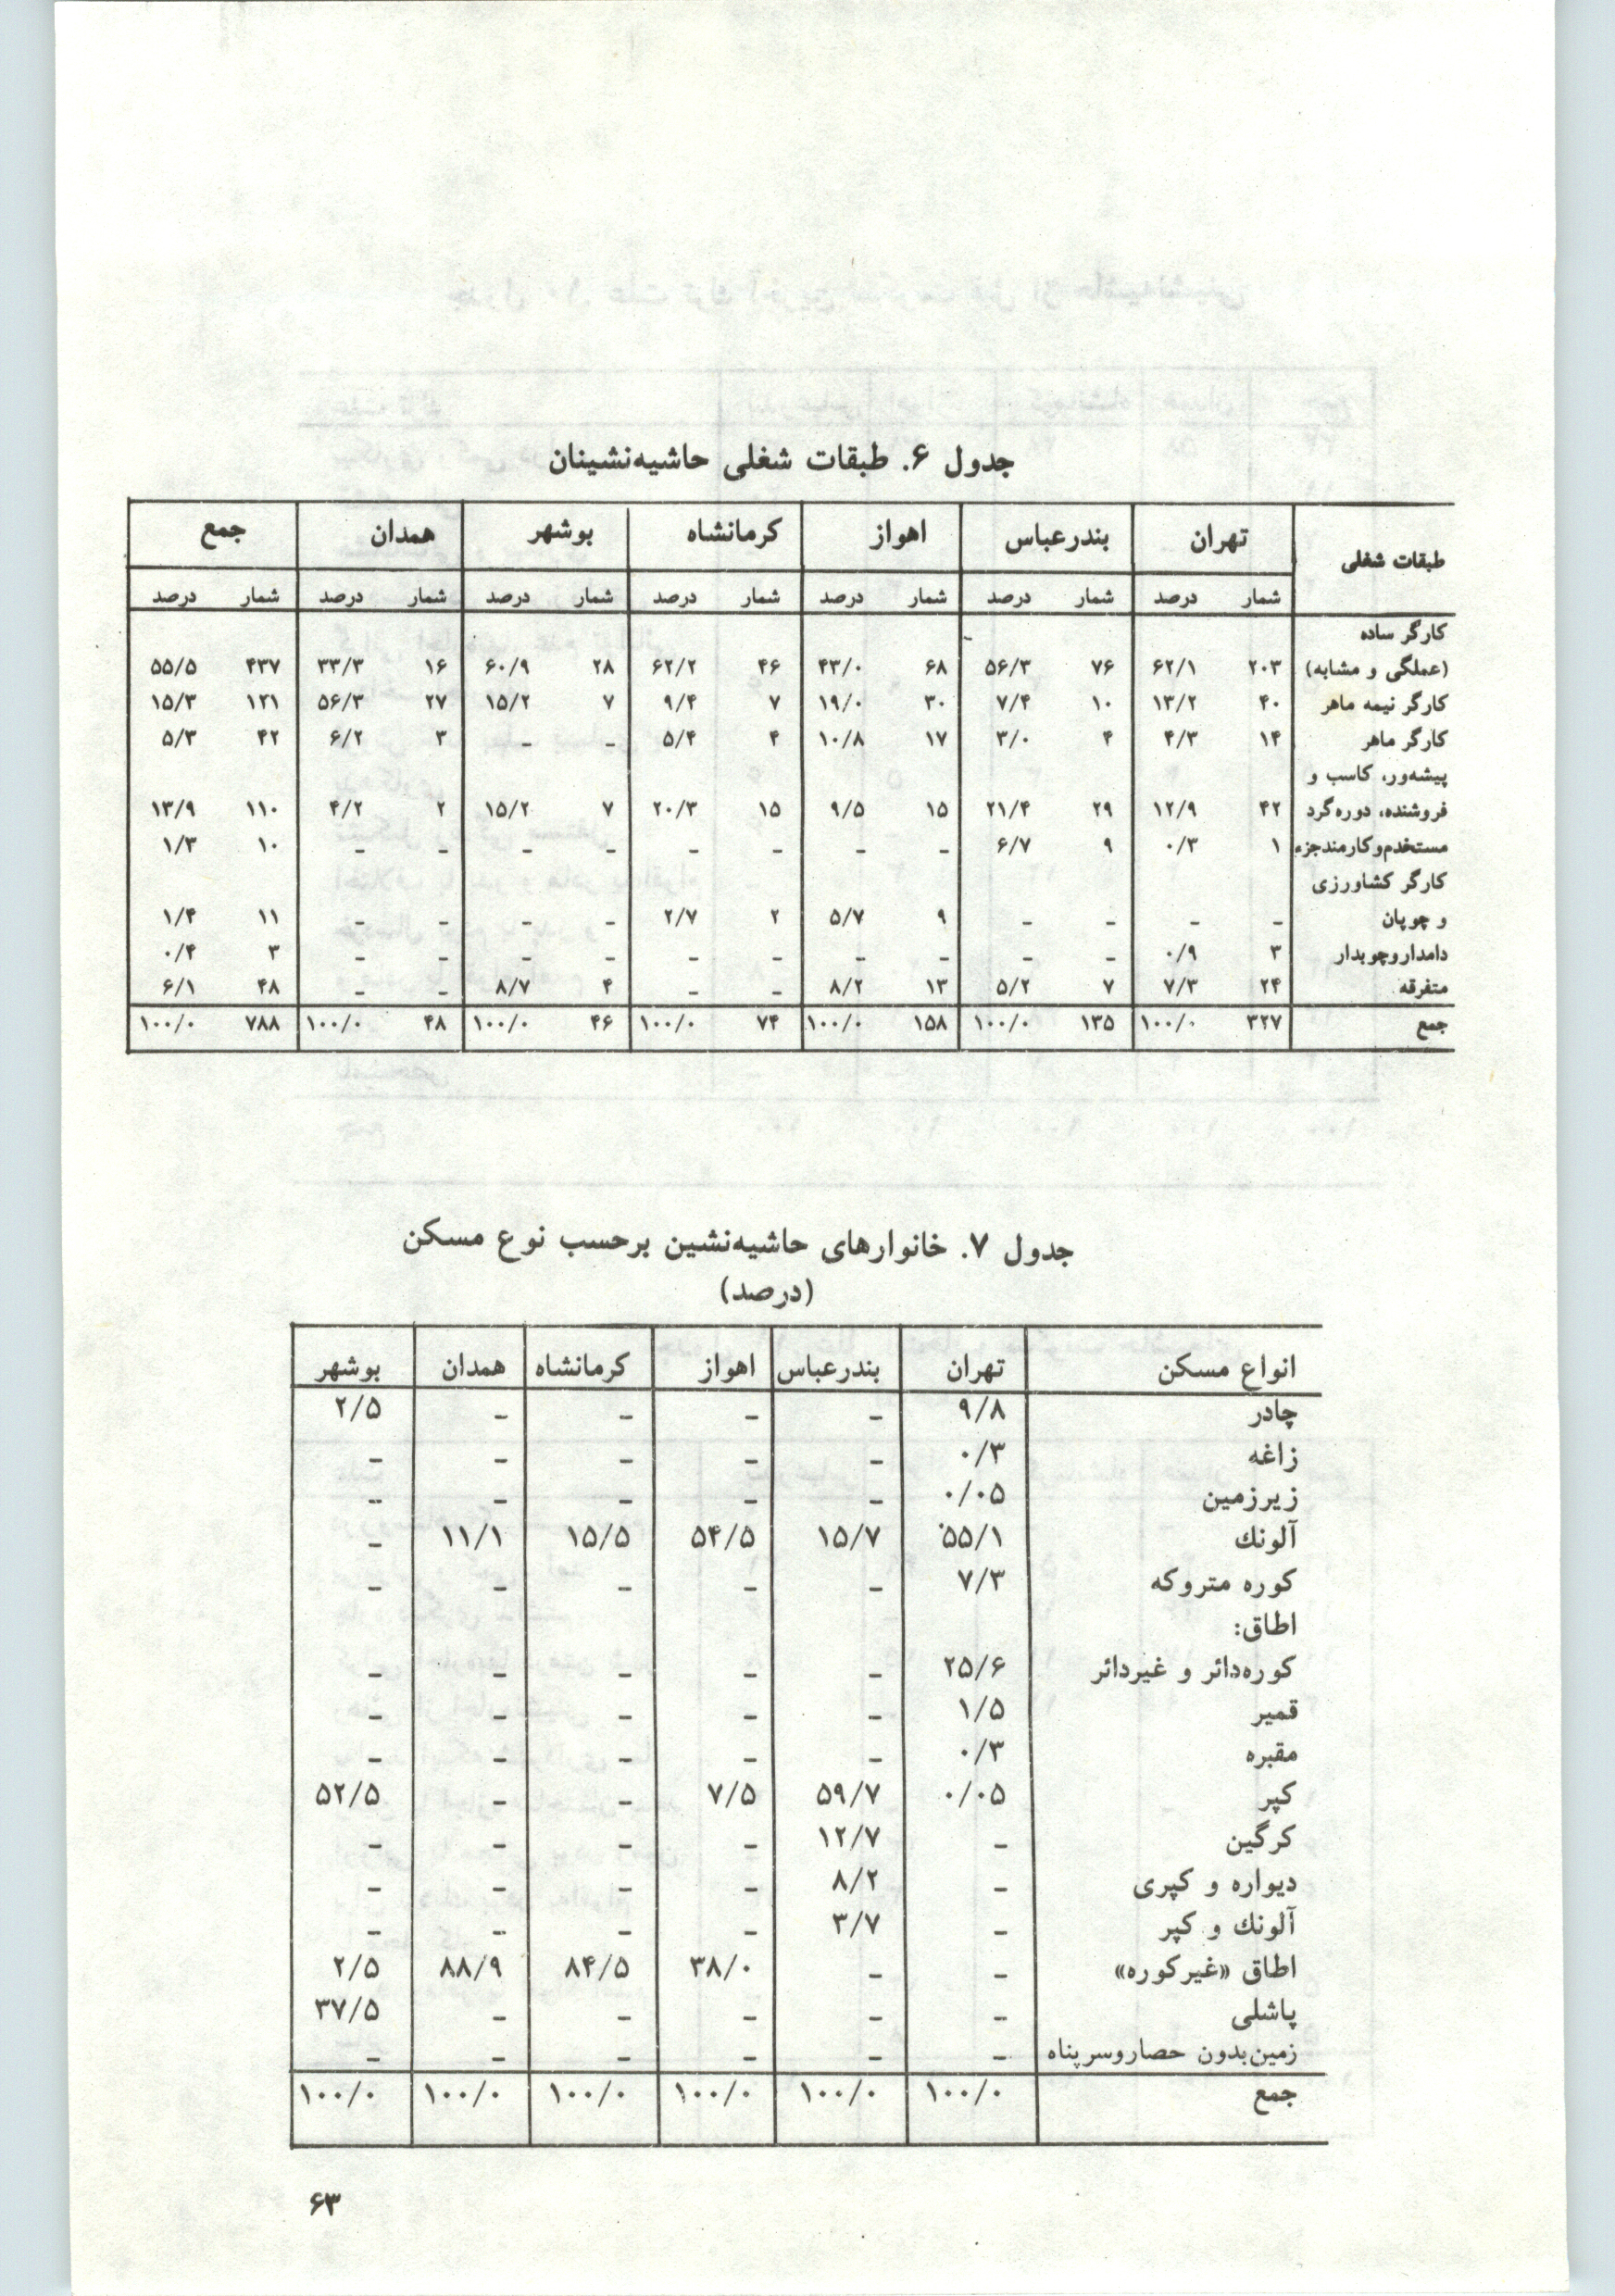 جدول ۶. طبقات شغلی حاشیه‌نشینان
طبقات شغلی تهران بندرعباس اهواز کرمانشاه بوشهر همدان جمع
شمار درصد شمار درصد شمار درصد شمار درصد شمار درصد شمار درصد شمار درصد
کارگر ساده
(عملگی و مشابه) ۲۰۳ ۶۲/۱ ۷۶ ۵۶/۳ ۶۸ ۴۳/۰ ۴۶ ۶۲/۲ ۲۸ ۶۰/۹ ۱۶ ۳۳/۳ ۴۳۷ ۵۵/۵
کارگر نیمه ماهر ۴۰ ۱۳/۲ ۱۰ ۷/۴ ۳۰ ۱۹/۰ ۷ ۹/۴ ۷ ۱۵/۲ ۲۷ ۵۶/۳ ۱۲۱ ۱۵/۳
کارگر ماهر ۱۴ ۴/۳ ۴ ۳/۰ ۱۷ ۱۰/۸ ۴ ۵/۴ – – ۳ ۶/۲ ۴۲ ۵/۳
پیشه‌ور، کاسب و
فروشنده، دوره‌گرد ۴۲ ۱۲/۹ ۲۹ ۲۱/۴ ۱۵ ۹/۵ ۱۵ ۲۰/۳ ۷ ۱۵/۲ ۲ ۴/۲ ۱۱۰ ۱۳/۹
مستخدم‌وکارمندجزء ۱ ۰/۳ ۹ ۶/۷ – – – – – – – – ۱۰ ۱/۳
کارگر کشاورزی
و چوپان – – – – ۹ ۵/۷ ۲ ۲/۷ – – – – ۱۱ ۱/۴
دامداروچوبدار ۳ ۰/۹ – – – – – – – – – – ۳ ۰/۴
متفرقه ۲۴ ۷/۳ ۷ ۵/۲ ۱۳ ۸/۲ – – ۴ ۸/۷ – – ۴۸ ۶/۱
جمع ۳۲۷ ۱۰۰/۰ ۱۳۵ ۱۰۰/۰ ۱۵۸ ۱۰۰/۰ ۷۴ ۱۰۰/۰ ۴۶ ۱۰۰/۰ ۴۸ ۱۰۰/۰ ۷۸۸ ۱۰۰/۰
جدول ۷. خانوارهای حاشیه‌نشین برحسب نوع مسکن
(درصد)
انواع مسکن تهران بندرعباس اهواز کرمانشاه همدان بوشهر
چادر ۹/۸ – – – – ۲/۵
زاغه ۰/۳ – – – – –
زیرزمین ۰/۰۵ – – – – –
آلونك ۵۵/۱ ۱۵/۷ ۵۴/۵ ۱۵/۵ ۱۱/۱ –
کوره متروکه ۷/۳ – – – – –
اطاق:
کوره‌دائر و غیردائر ۲۵/۶ – – – – –
قمیر ۱/۵ – – – – –
مقبره ۰/۳ – – – – –
کپر ۰/۰۵ ۵۹/۷ ۷/۵ – – ۵۲/۵
کرگین – ۱۲/۷ – – – –
دیواره و کپری – ۸/۲ – – – –
آلونك و کپر – ۳/۷ – – – –
اطاق «غیرکوره» – – ۳۸/۰ ۸۴/۵ ۸۸/۹ ۲/۵
پاشلی – – – – – ۳۷/۵
زمین‌بدون حصاروسرپناه – – – – – –
جمع ۱۰۰/۰ ۱۰۰/۰ ۱۰۰/۰ ۱۰۰/۰ ۱۰۰/۰ ۱۰۰/۰
۶۳